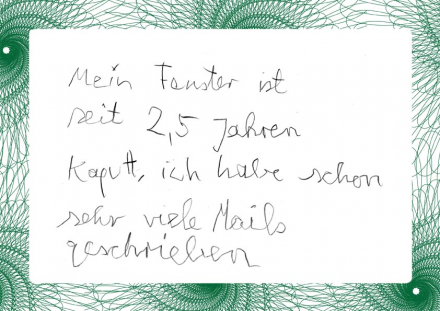 Mein Fenster ist
seit 2,5 Jahren
Kaputt, ich habe schon
sehr viele Mails
geschrieben